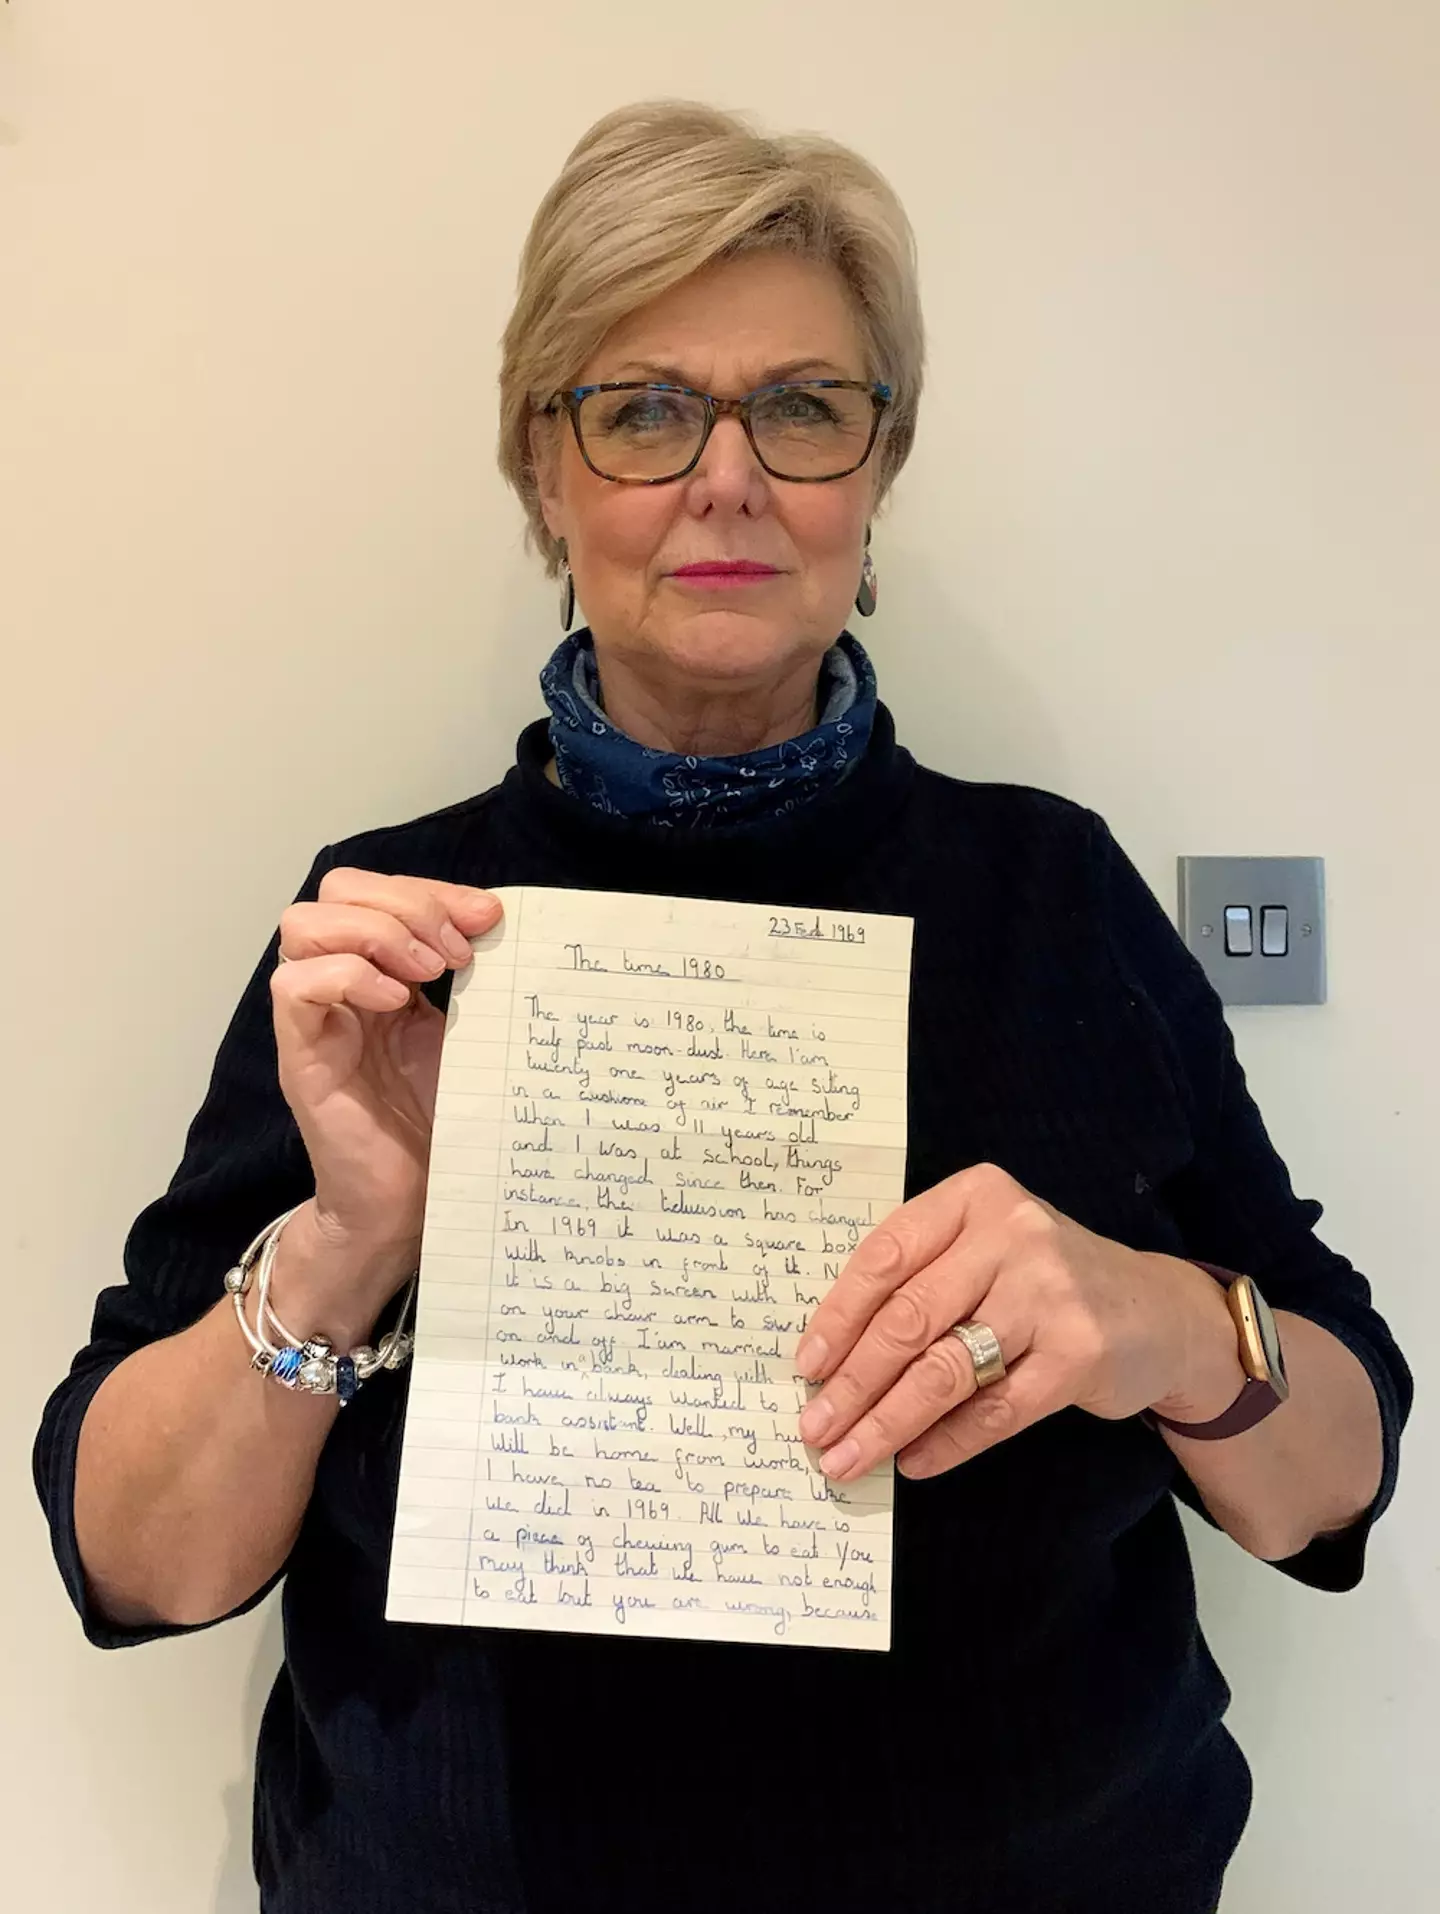 23 Feb 1969
The time 1980
The year is 1980, the time is
half past moon-dust. Here I'am
twenty one years of age sitting
in a cushione of air I remember
When I was 11 years old
and I was at school, things
have changed since then. For
instance, the television has changed
In 1969 it was a square box
with knobs in front of it. N
it is a big screen with kn
on your chair arm to swit
on and off. I'am married
work in a bank, dealing with m
I have always wanted to b
bank assistant. Well, my hu
Will be home from work,
I have no tea to prepare like
we did in 1969. All we have is
a piece of chewing gum to eat You
may think that we have not enough
to eat but you are wrong, because